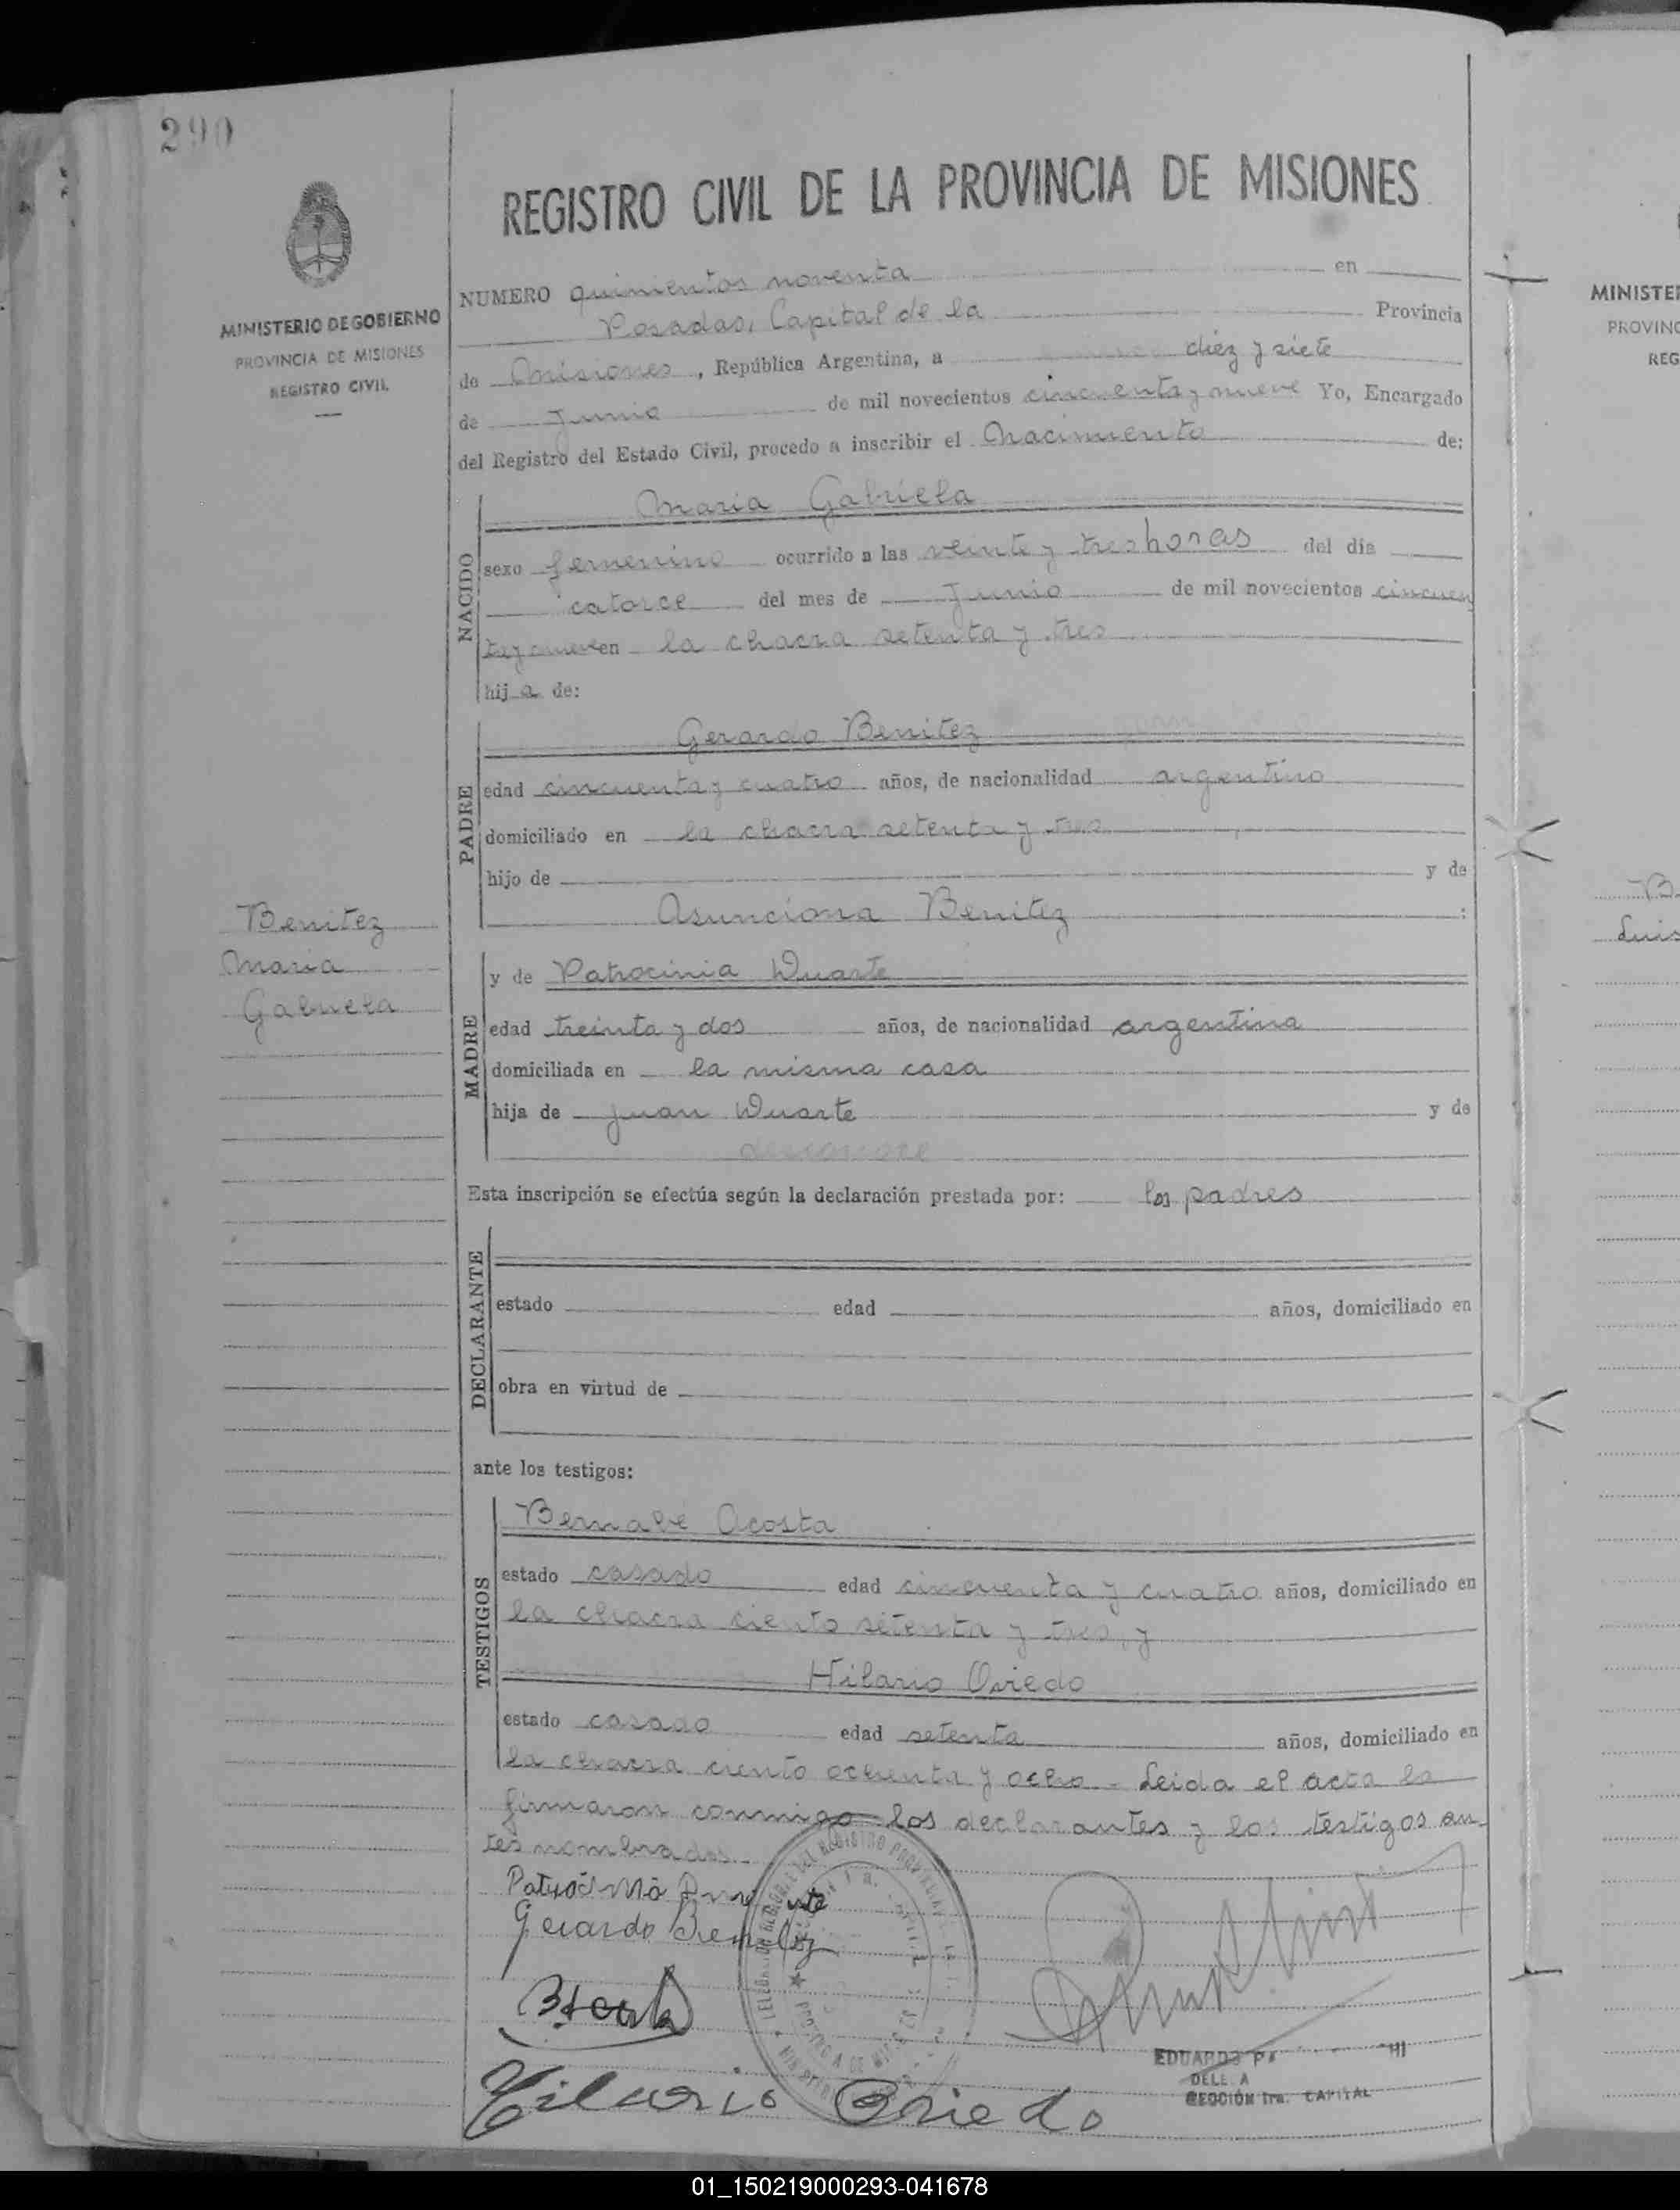 290
MINISTERIO DE GOBIERNO
PROVINCIA DE MISIONES
REGISTRO CIVIL
REGISTRO CIVIL DE LA PROVINCIA DE MISIONES
NUMERO quinientos noventa en
Posadas, Capital de la Provincia
de Misiones, República Argentina, a diez y siete
de Junio de mil novecientos cincuenta y nueve Yo, Encargado
del Registro del Estado Civil, procedo a inscribir el Nacimiento de:
NACIDO
Maria Gabriela
sexo femenino ocurrido a las veinte y tres horas del día
catorce del mes de Junio de mil novecientos cincuen
ta y nueve en la chacra setenta y tres
hij a de:
PADRE
Gerardo Benitez
edad cincuenta y cuatro años, de nacionalidad argentino
domiciliado en la chacra setenta y tres
hijo de y de
Asunciona Benitez
Benitez
Maria
Gabriela
MADRE
y de Patrocinia Duarte
edad treinta y dos años, de nacionalidad argentina
domiciliada en la misma casa
hija de Juan Duarte y de
Esta inscripción se efectúa según la declaración prestada por: los padres
DECLARANTE
estado edad años, domiciliado en
obra en virtud de
ante los testigos:
TESTIGOS
Bernabé Acosta
estado casado edad cincuenta y cuatro años, domiciliado en
la chacra ciento setenta y tres, y
Hilario Oviedo
estado casado edad setenta años, domiciliado en
la chacra ciento ochenta y ocho - Leida el acta la
firmaron conmigo los declarantes y los testigos an-
tes nombrados.
Gerardo Benitez
Hilario Oviedo
EDUARDO
SECCIÓN 1ra. CAPITAL
MINISTE
PROVINC
REG
B
Luis
01_150219000293-041678